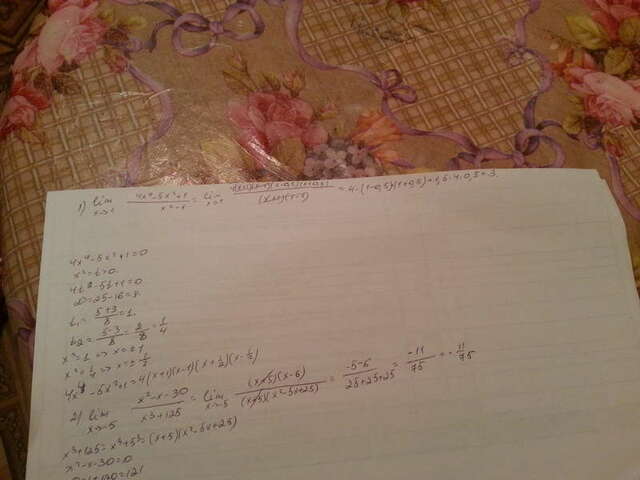 1) lim x→1 (4x⁴-5x²+1)/(x²-1) = lim x→1 = 4·(1-0,5)(1+0,5) = 4·0,5 = 3.
4x⁴-5x²+1=0
x²=t≥0
4t²-5t+1=0
D=25-16=9
t₁ = (5+3)/8 = 1
t₂ = (5-3)/8 = 2/8 = 1/4
x²=1 => x=±1
x²=1/4 => x=±1/2
4x⁴-5x²+1=4(x+1)(x-1)(x+1/2)(x-1/2)
2) lim x→-5 (x²-x-30)/(x³+125) = lim x→-5 ((x+5)(x-6))/((x+5)(x²-5x+25)) = (-5-6)/(25+25+25) = -11/75 = -11/75
x³+125=x³+5³=(x+5)(x²-5x+25)
x²-x-30=0
D=1+120=121